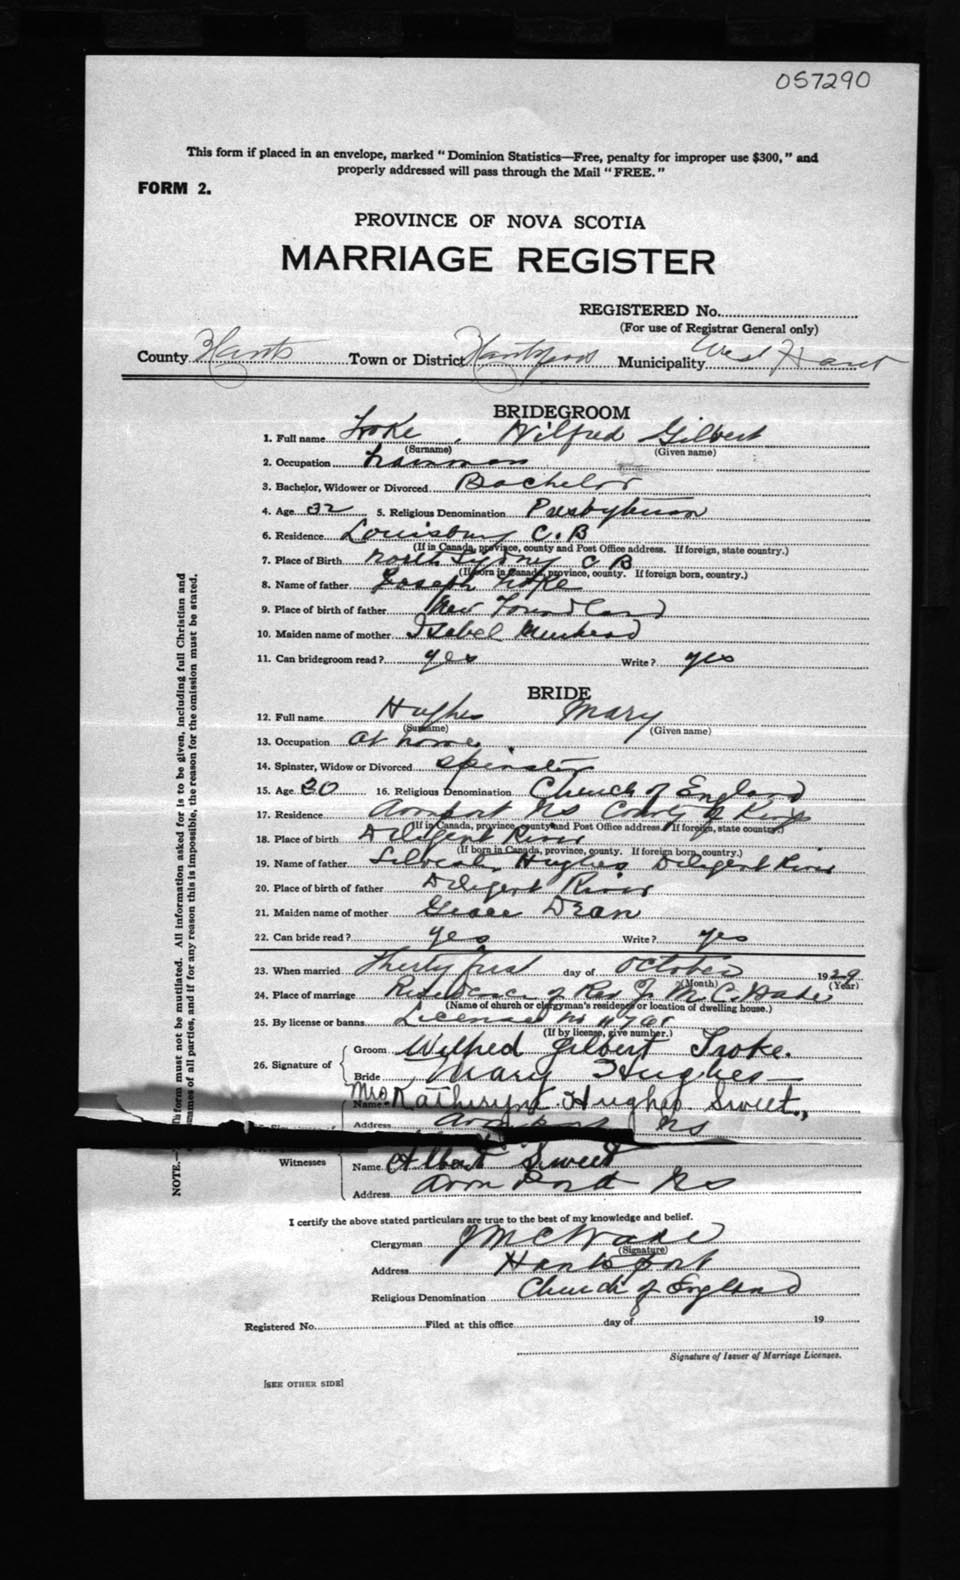 057290
This form if placed in an envelope, marked "Dominion Statistics—Free, penalty for improper use $300," and
properly addressed will pass through the Mail "FREE."
FORM 2.
PROVINCE OF NOVA SCOTIA
MARRIAGE REGISTER
REGISTERED No.
(For use of Registrar General only)
County Hants Town or District Hantsport Municipality West Hants
BRIDEGROOM
1. Full name Troke, Wilfred Gilbert
(Surname) (Given name)
2. Occupation Trainman
3. Bachelor, Widower or Divorced Bachelor
4. Age 32 5. Religious Denomination Presbyterian
6. Residence Louisburg C.B
(If in Canada, province, county and Post Office address. If foreign, state country.)
7. Place of Birth North Sydney C B
(If born in Canada, province, county. If foreign born, country.)
8. Name of father Joseph Troke
9. Place of birth of father New Foundland
10. Maiden name of mother Isabel Muirhead
11. Can bridegroom read? yes Write? yes
BRIDE
12. Full name Hughes Mary
(Surname) (Given name)
13. Occupation At home
14. Spinster, Widow or Divorced Spinster
15. Age 30 16. Religious Denomination Church of England
17. Residence Avonport NS County of Kings
(If in Canada, province, county and Post Office address. If foreign, state country.)
18. Place of birth Diligent River
(If born in Canada, province, county. If foreign born, country.)
19. Name of father Hughes Diligent River
20. Place of birth of father Diligent River
21. Maiden name of mother Grace Dean
22. Can bride read? yes Write? yes
23. When married Thirty first day of October 1929
(Month) (Year)
24. Place of marriage Residence of Rev J. M. C. Wade
(Name of church or clergyman's residence or location of dwelling house.)
25. By license or banns License No
(If by license, give number.)
26. Signature of
Groom Wilfred Gilbert Troke.
Bride Mary Hughes
Name Mrs Katheryn Hughes Sweet.,
Address Avonport NS
Witnesses
Name Albert Sweet
Address Avon Port NS
I certify the above stated particulars are true to the best of my knowledge and belief.
Clergyman J M C Wade
(Signature)
Address Hantsport
Religious Denomination Church of England
Registered No. Filed at this office day of 19
Signature of Issuer of Marriage Licenses.
[SEE OTHER SIDE]
NOTE.—This form must not be mutilated. All information asked for is to be given, including full Christian and
names of all parties, and if for any reason this is impossible, the reason for the omission must be stated.